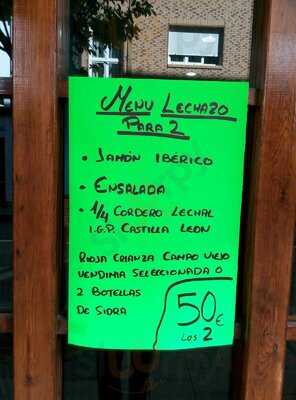 MENU LECHAZO
PARA 2
• JAMÓN IBÉRICO
• ENSALADA
• 1/4 CORDERO LECHAL
I.G.P. CASTILLA LEON
RIOJA CRIANZA CAMPO VIEJO
VENDIMIA SELECCIONADA O
2 BOTELLAS
DE SIDRA
50€
LOS 2